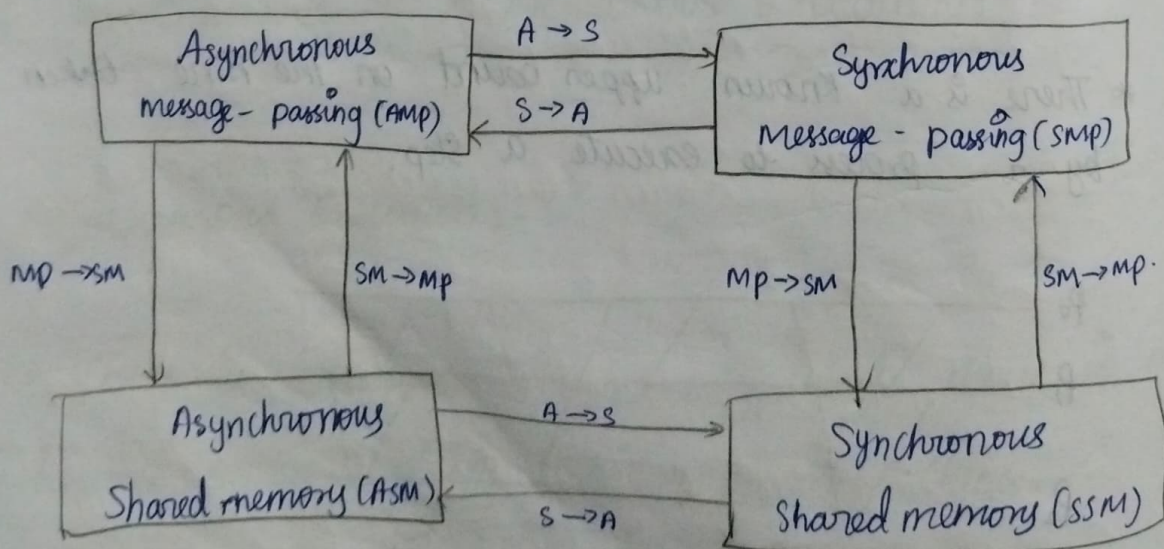 Asynchronous
message - passing (AMP)
A → S
S → A
Synchronous
message - passing (SMP)
MP → SM
SM → MP
MP → SM
SM → MP.
Asynchronous
Shared memory (ASM)
A → S
S → A
Synchronous
Shared memory (SSM)